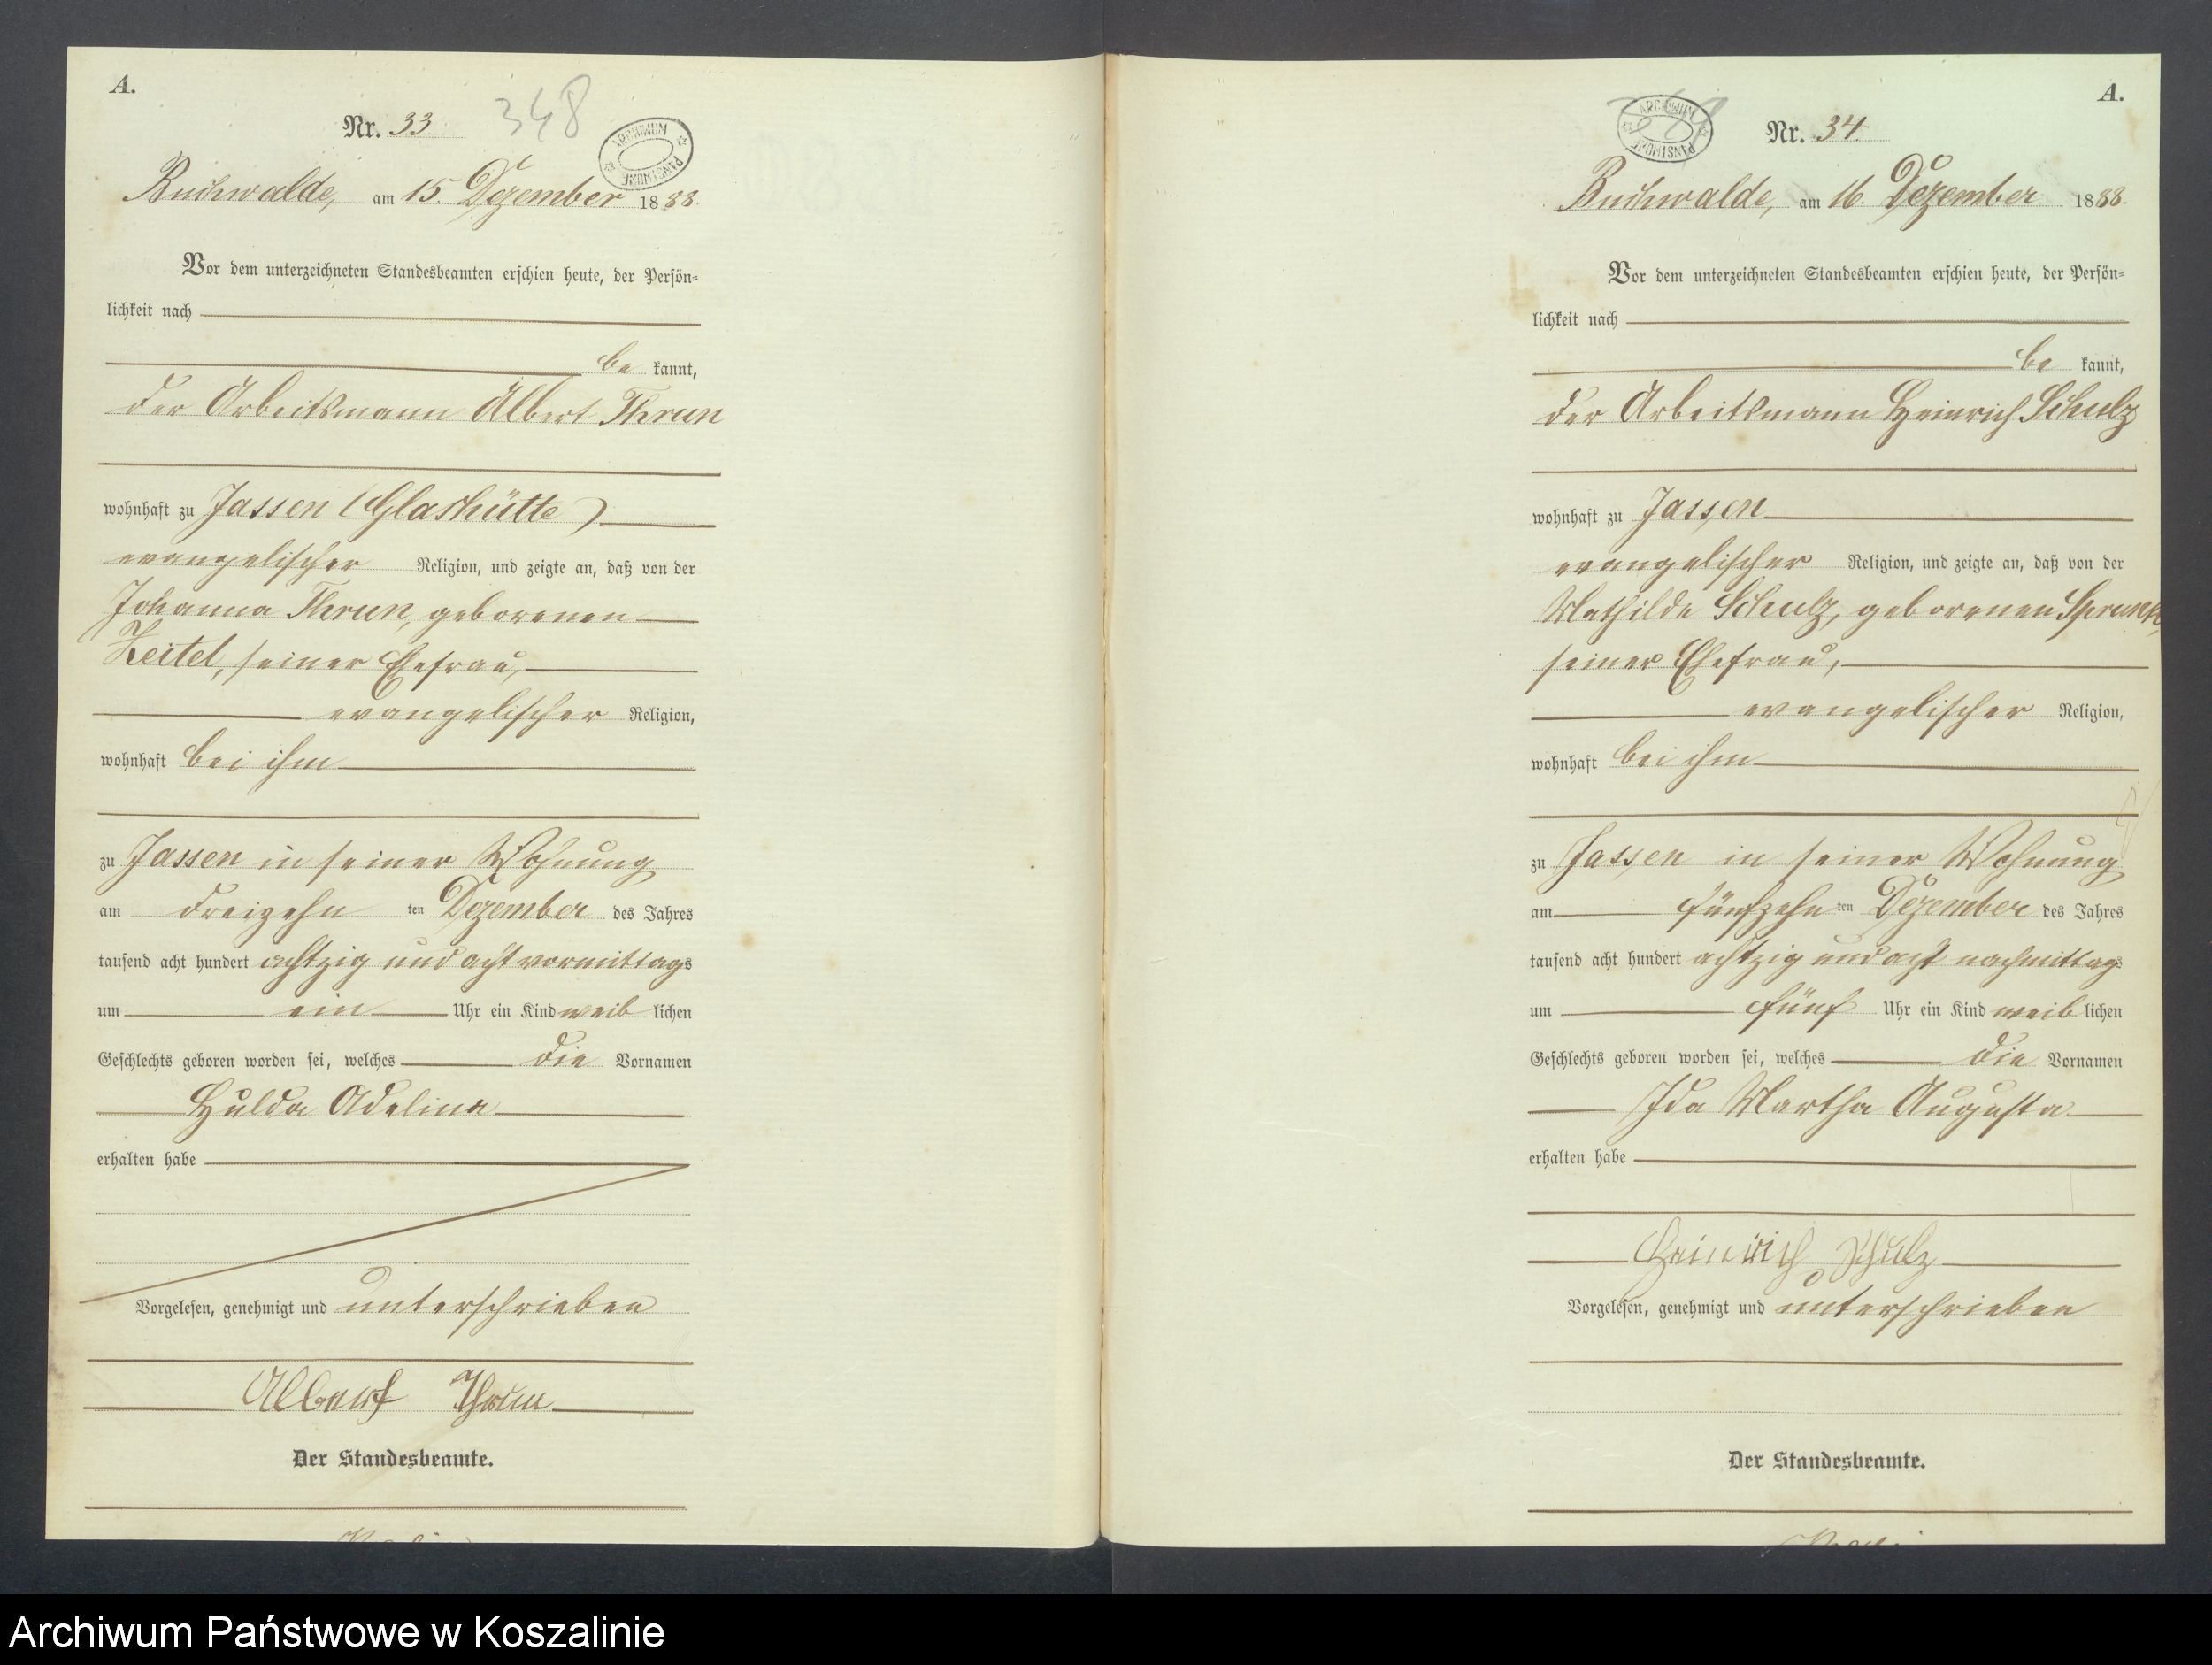 A.
Nr. 33
348
ARCHIWUM PAŃSTWOWE
Buchwalde, am 15. Dezember 1888.
Vor dem unterzeichneten Standesbeamten erschien heute, der Persön=
lichkeit nach
be kannt,
der Arbeitsmann Albert Thrun
wohnhaft zu Jassen (Glashütte)
evangelischer Religion, und zeigte an, daß von der
Johanna Thrun, geborenen
Zeitel, seiner Ehefrau,
evangelischer Religion,
wohnhaft bei ihm
zu Jassen in seiner Wohnung
am dreizehn ten Dezember des Jahres
tausend acht hundert achtzig und acht vormittags
um ein Uhr ein Kind weib lichen
Geschlechts geboren worden sei, welches die Vornamen
Hulda Adelina
erhalten habe
Vorgelesen, genehmigt und unterschrieben
Albert Thrun
Der Standesbeamte.
A.
ARCHIWUM PAŃSTWOWE
Nr. 34.
Buchwalde, am 16. Dezember 1888.
Vor dem unterzeichneten Standesbeamten erschien heute, der Persön=
lichkeit nach
be kannt,
der Arbeitsmann Heinrich Schulz
wohnhaft zu Jassen
evangelischer Religion, und zeigte an, daß von der
Mathilde Schulz, geborenen Sprunk,
seiner Ehefrau,
evangelischer Religion,
wohnhaft bei ihm
zu Jassen in seiner Wohnung
am fünfzehn ten Dezember des Jahres
tausend acht hundert achtzig und acht nachmittags
um fünf Uhr ein Kind weib lichen
Geschlechts geboren worden sei, welches die Vornamen
Ida Martha Augusta
erhalten habe
Heinrich Schulz
Vorgelesen, genehmigt und unterschrieben
Der Standesbeamte.
Archiwum Państwowe w Koszalinie